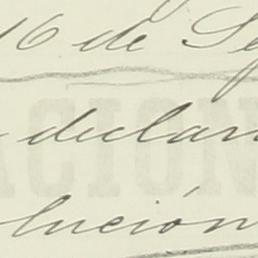 16 de Se
declar
lución